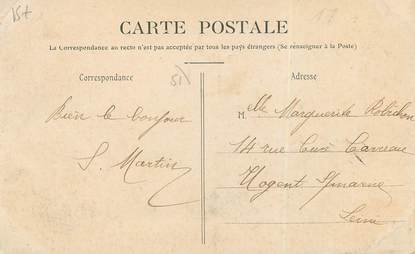 15+
CARTE POSTALE
La Correspondance au recto n'est pas acceptée par tous les pays étrangers (Se renseigner à la Poste)
Correspondance
51
Adresse
Bien le bonjour
S. Martin
M.elle Marguerite Robichon
14 rue Curé Carreau
Nogent s/marne
Seine